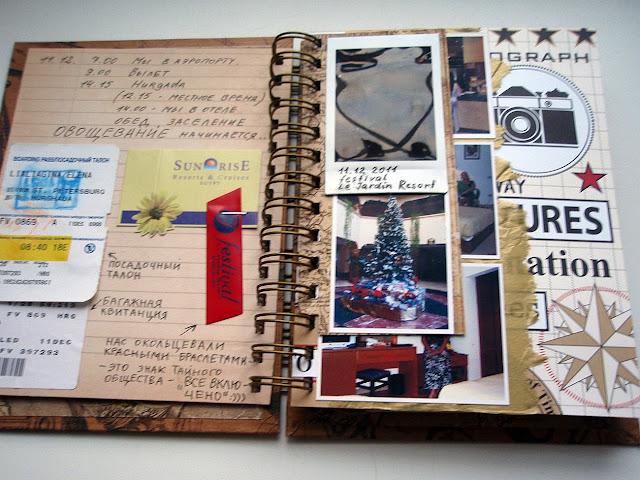 11.12. 7.00 МЫ В АЭРОПОРТУ
9.00 ВЫЛЕТ
14.15 HURGADA
(12.15 - МЕСТНОЕ ВРЕМЯ)
14.00 - МЫ В ОТЕЛЕ
ОБЕД, ЗАСЕЛЕНИЕ
ОВОЩЕВАНИЕ НАЧИНАЕТСЯ...
BOARDING PASS/ПОСАДОЧНЫЙ ТАЛОН
ST. PETERSBURG
HURGHADA
FV 0869
08:40 18E
FV 869 HRG
11DEC
FV 397293
SUNRISE
Resorts & Cruises
EGYPT
festival
ПОСАДОЧНЫЙ
ТАЛОН
БАГАЖНАЯ
КВИТАНЦИЯ
НАС ОКОЛЬЦЕВАЛИ
КРАСНЫМИ БРАСЛЕТАМИ -
- ЭТО ЗНАК ТАЙНОГО
ОБЩЕСТВА - "ВСЕ ВКЛЮ-
ЧЕНО":)))
11.12 2011
festival
Le Jardin Resort
OGRAPH
WAY
URES
nation
es
of Tim